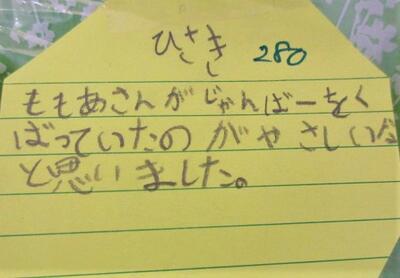 ひさき 280
ももあさんがじゃんばーをく
ばっていたのがやさしいな
と思いました。